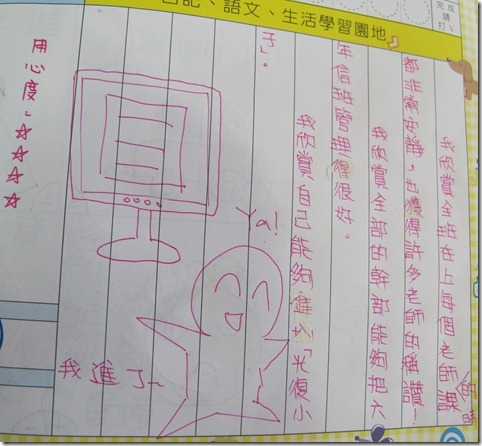 日記、語文、生活學習園地
完成
請
打V
我欣賞全班在上每個老師課的時
都非常安靜，也獲得許多老師的稱讚！
我欣賞全部的幹部能夠把六
年信班管理得很好。
我欣賞自己能夠進入「光復小
子」。
Ya!
我進了~
用心度：☆☆☆☆